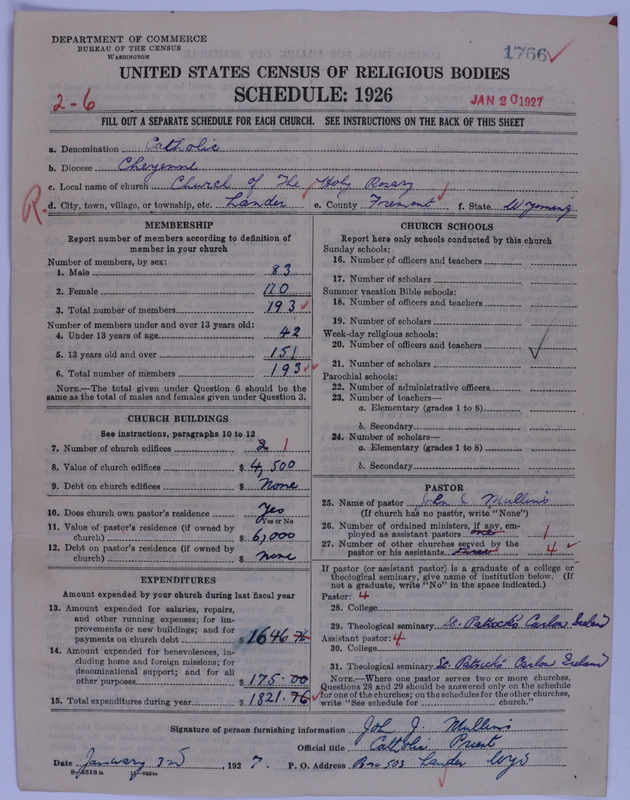 DEPARTMENT OF COMMERCE
BUREAU OF THE CENSUS
WASHINGTON
1766
UNITED STATES CENSUS OF RELIGIOUS BODIES
SCHEDULE: 1926
2-6
JAN 20 1927
FILL OUT A SEPARATE SCHEDULE FOR EACH CHURCH. SEE INSTRUCTIONS ON THE BACK OF THIS SHEET
a. Denomination Catholic
b. Diocese Cheyenne
c. Local name of church Church of The Holy Rosary
R. d. City, town, village, or township, etc. Lander e. County Fremont f. State Wyoming
MEMBERSHIP
Report number of members according to definition of
member in your church
Number of members, by sex:
1. Male 83
2. Female 110
3. Total number of members 193
Number of members under and over 13 years old:
4. Under 13 years of age 42
5. 13 years old and over 151
6. Total number of members 193
NOTE.—The total given under Question 6 should be
same as the total of males and females given under Question 3.
CHURCH BUILDINGS
See instructions, paragraphs 10 to 12
7. Number of church edifices 2 1
8. Value of church edifices $ 4,500
9. Debt on church edifices $ None
10. Does church own pastor's residence? Yes
Yes or No
11. Value of pastor's residence (if owned by
church) $ 6,000
12. Debt on pastor's residence (if owned by
church) $ none
EXPENDITURES
Amount expended by your church during last fiscal year
13. Amount expended for salaries, repairs,
and other running expenses; for im-
provements or new buildings; and for
payments on church debt $ 1646.76
14. Amount expended for benevolences, in-
cluding home and foreign missions; for
denominational support; and for all
other purposes $ 175.00
15. Total expenditures during year $ 1821.76
CHURCH SCHOOLS
Report here only schools conducted by this church
Sunday schools:
16. Number of officers and teachers
17. Number of scholars
Summer vacation Bible schools:
18. Number of officers and teachers
19. Number of scholars
Week-day religious schools:
20. Number of officers and teachers
21. Number of scholars
Parochial schools:
22. Number of administrative officers
23. Number of teachers—
a. Elementary (grades 1 to 8)
b. Secondary
24. Number of scholars—
a. Elementary (grades 1 to 8)
b. Secondary
PASTOR
25. Name of pastor John J. Mullins
(If church has no pastor, write "None")
26. Number of ordained ministers, if any, em-
ployed as assistant pastors one 1
27. Number of other churches served by the
pastor or his assistants 4
If pastor (or assistant pastor) is a graduate of a college or
theological seminary, give name of institution below. (If
not a graduate, write "No" in the space indicated.)
Pastor: 4
28. College
29. Theological seminary St. Patrick's Carlow Ireland
Assistant pastor: 4
30. College
31. Theological seminary St. Patrick's Carlow Ireland
NOTE.—Where one pastor serves two or more churches,
Questions 28 and 29 should be answered only on the schedule
for one of the churches; on the schedules for the other churches,
write "See schedule for church."
Signature of person furnishing information John J. Mullins
Official title Catholic Priest
Date January 3rd, 1927. P. O. Address Box 503 Lander Wyo
8-5518a